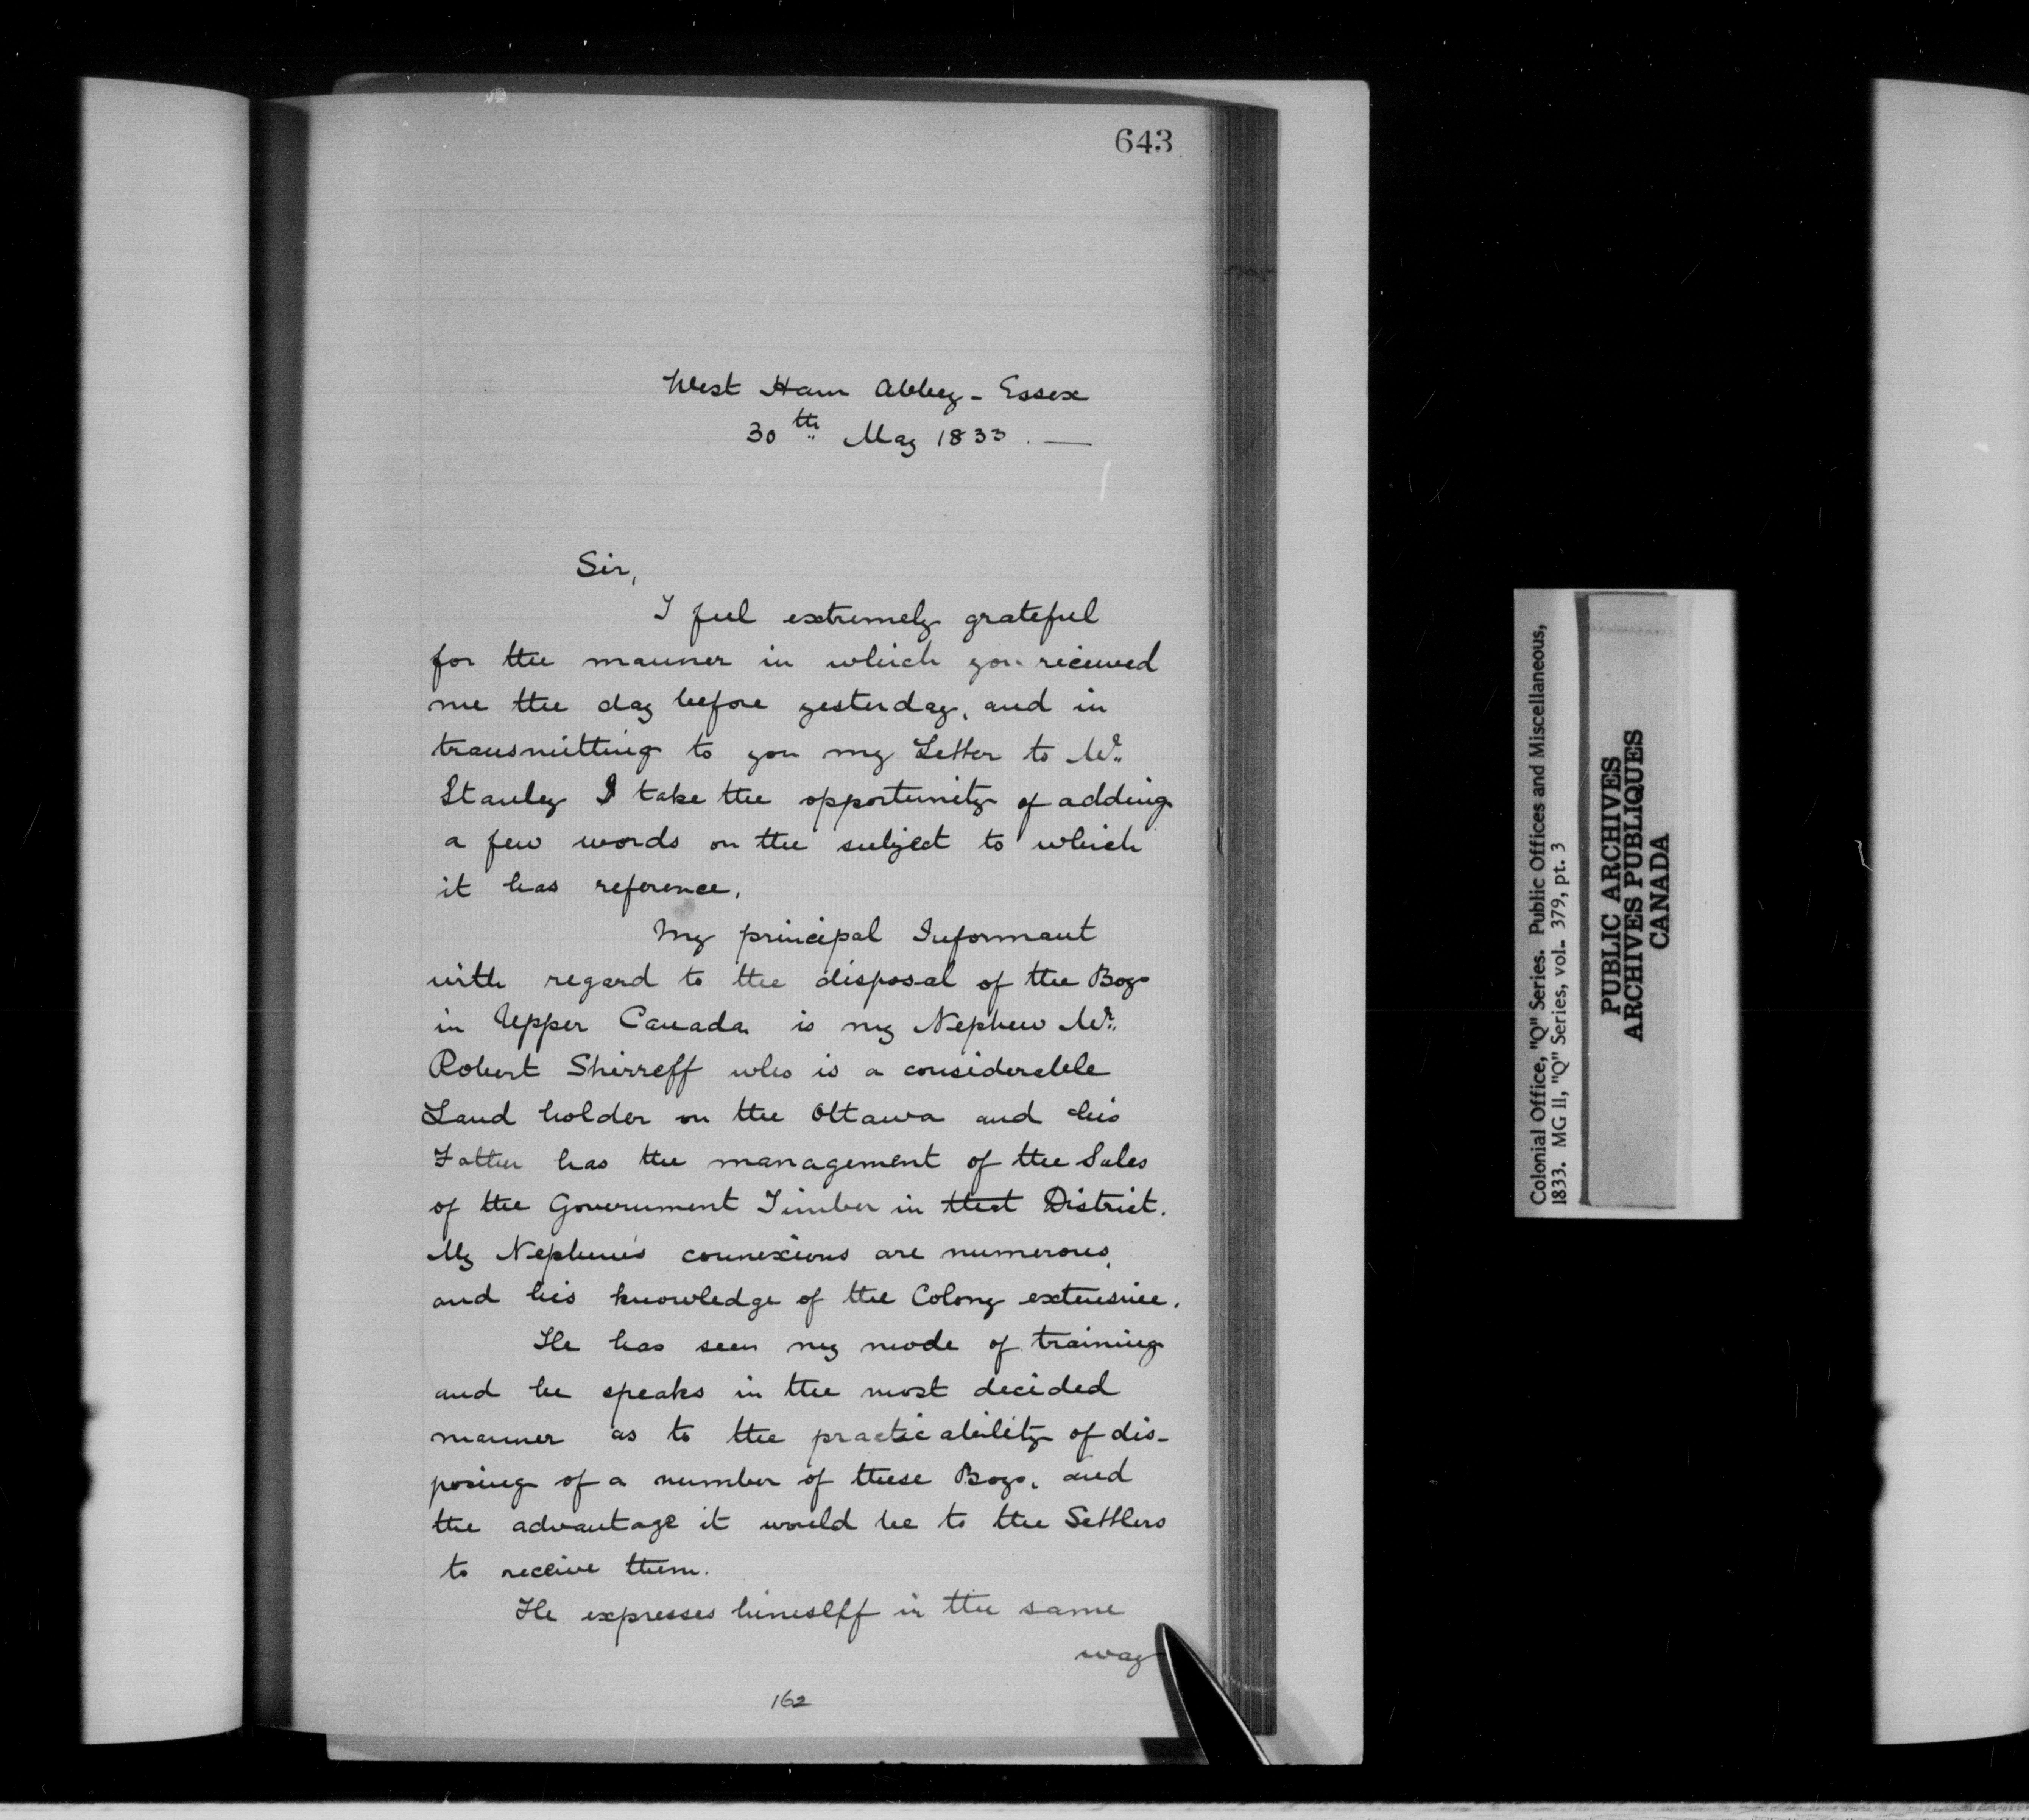 643
West Ham Abbey - Essex
30th May 1833. —
Sir,
I feel extremely grateful
for the manner in which you received
me the day before yesterday, and in
transmitting to you my Letter to Mr.
Stanley I take the opportunity of adding
a few words on the subject to which
it has reference.
My principal Informant
with regard to the disposal of the Boys
in Upper Canada is my Nephew Mr.
Robert Shirreff who is a considerable
Land holder on the Ottawa and his
Father has the management of the Sales
of the Government Timber in that District.
My Nephew's connexions are numerous,
and his knowledge of the Colony extensive.
He has seen my mode of training
and he speaks in the most decided
manner as to the practicability of dis-
posing of a number of these Boys, and
the advantage it would be to the Settlers
to receive them.
He expresses himselff in the same
way
162
Colonial Office, "Q" Series. Public Offices and Miscellaneous,
1833. MG 11, "Q" Series, vol. 379, pt. 3
PUBLIC ARCHIVES
ARCHIVES PUBLIQUES
CANADA